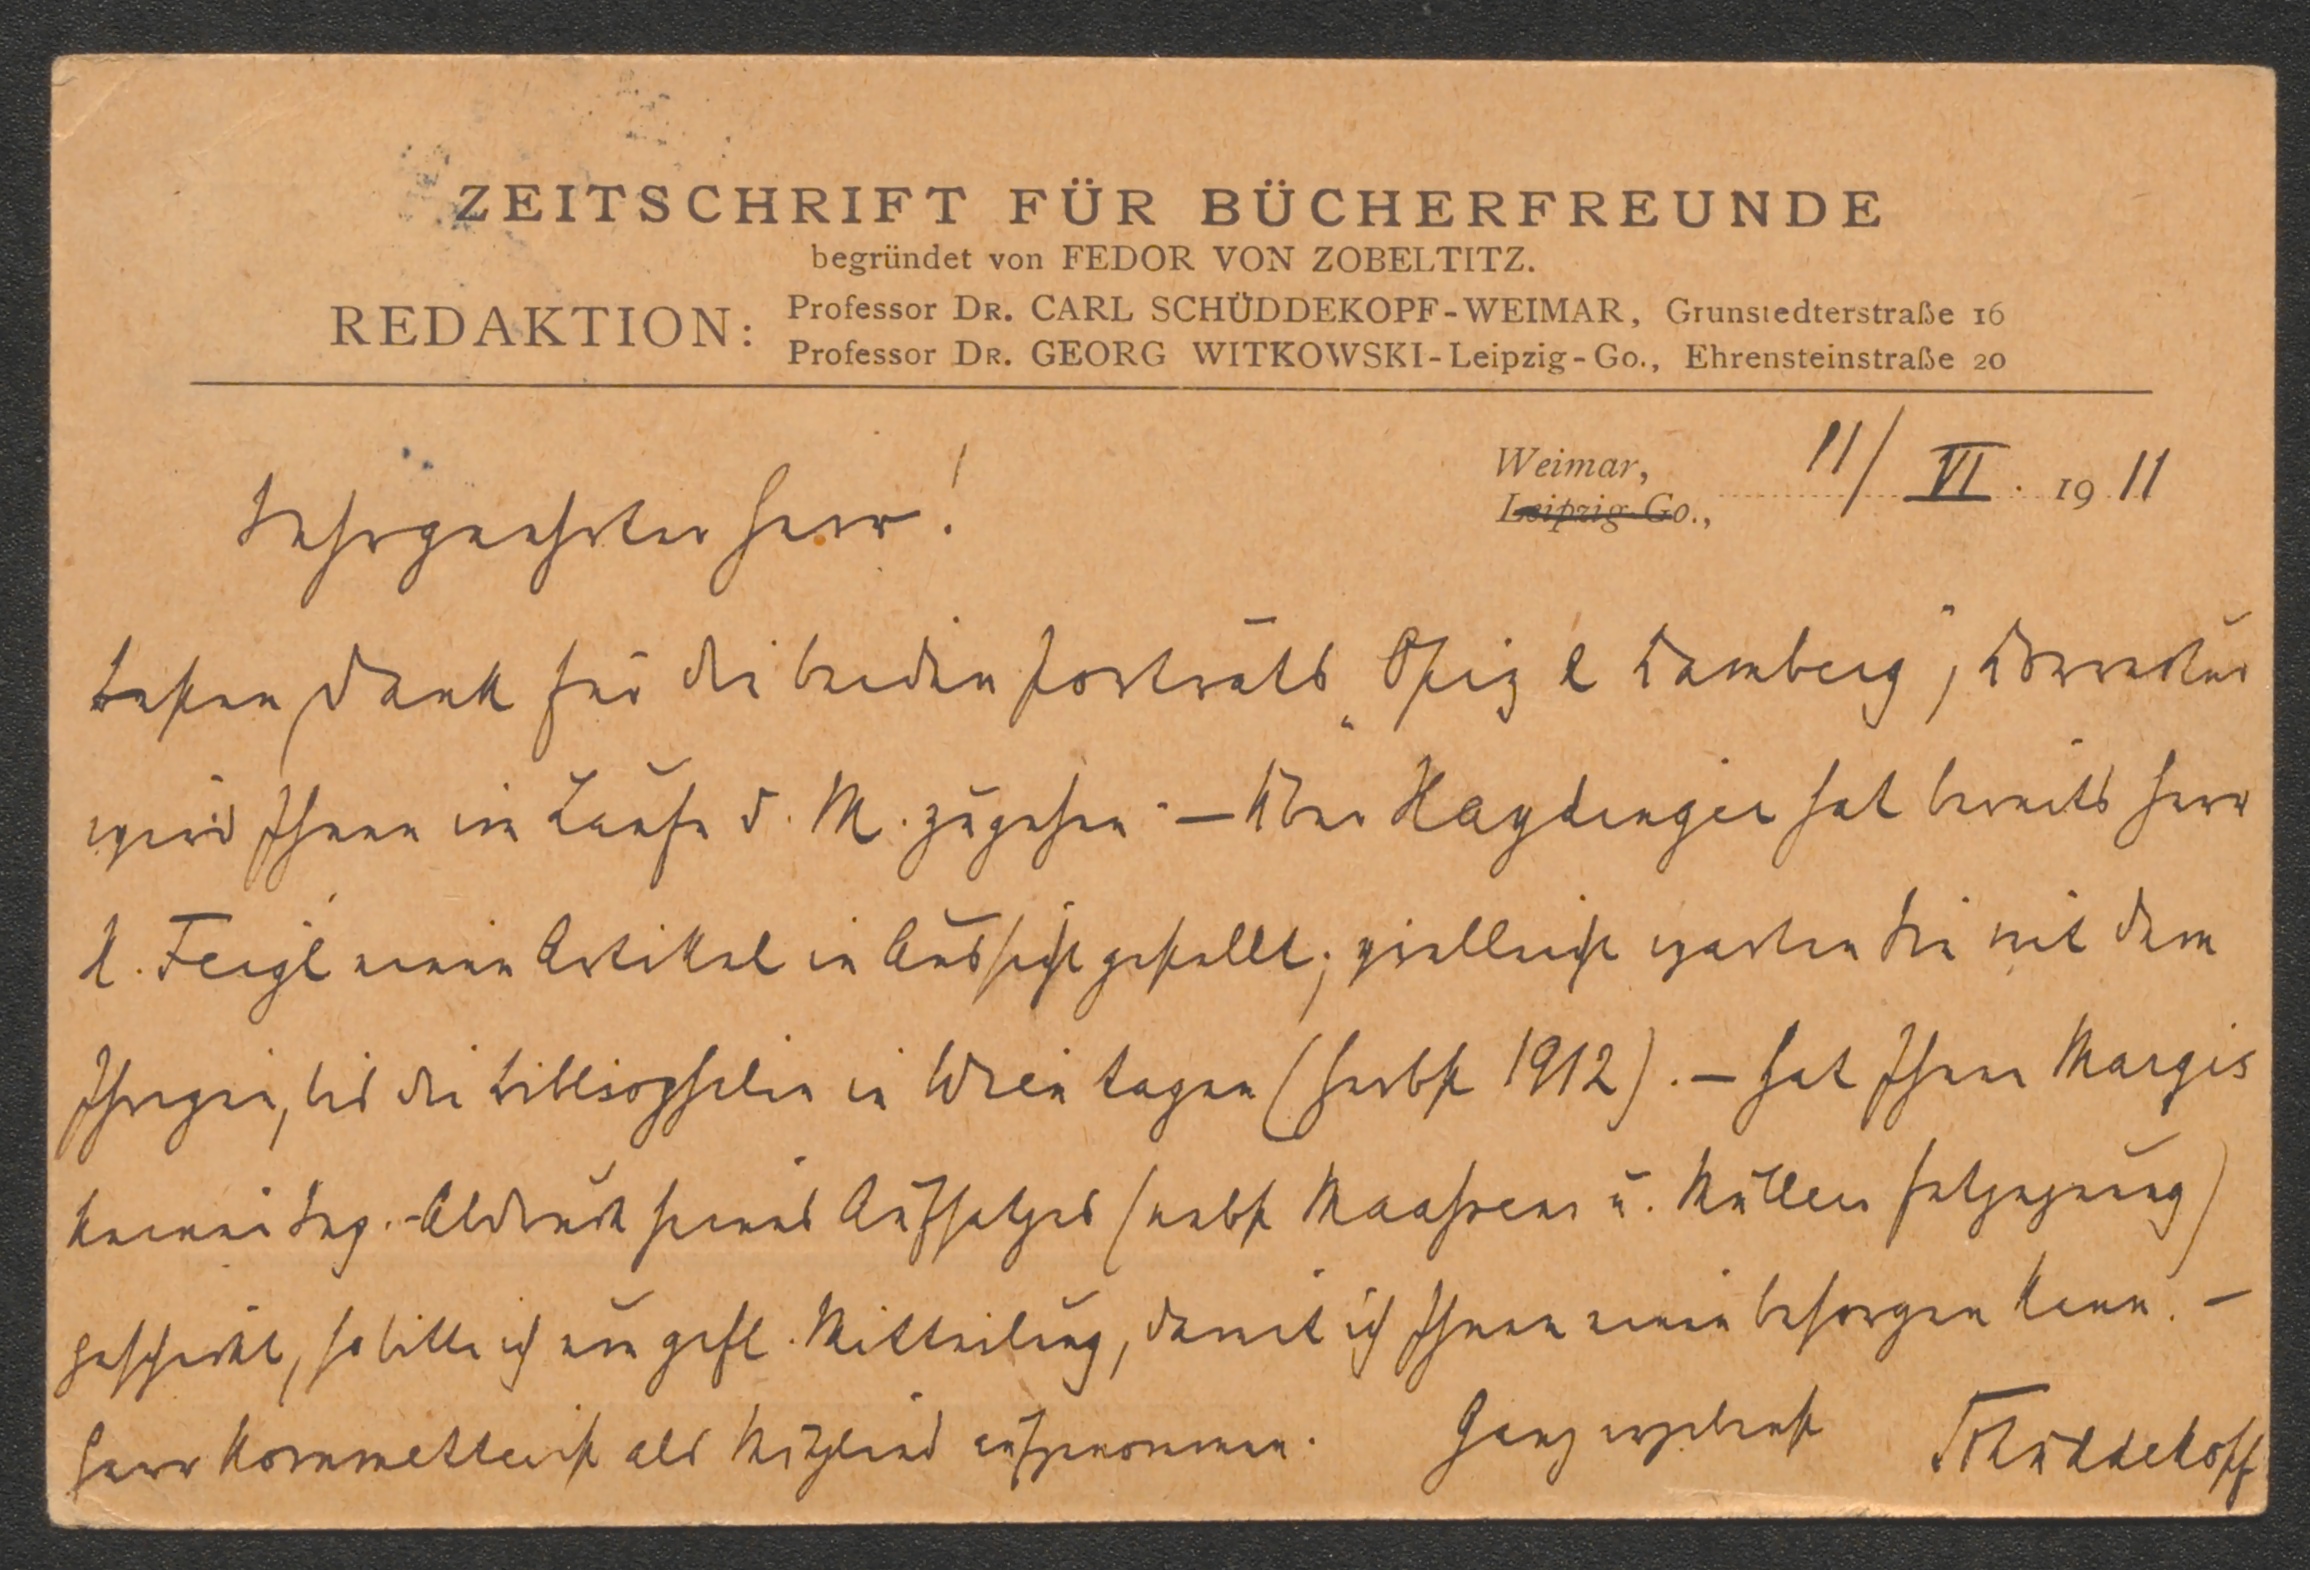 ZEITSCHRIFT FÜR BÜCHERFREUNDE
begründet von FEDOR VON ZOBELTITZ.
REDAKTION:
Professor DR. CARL SCHÜDDEKOPF-WEIMAR, Grunstedterstraße 16
Professor DR. GEORG WITKOWSKI-Leipzig-Go., Ehrensteinstraße 20
Weimar, 11/VI. 1911
Leipzig-Go.,
Sehrgeehrter Herr!
besten Dank für die beiden Porträts „Opiz & Bamberg", Korrektur
wird Ihnen im Laufe d. M. zugehen. – Über Haydinger hat bereits Herr
H. Feigl einen Artikel in Aussicht gestellt; vielleicht warten Sie mit dem
Ihrigen, bis die Bibliophilen in Wien tagen (Herbst 1912). – Hat Ihnen Margis
keinen Sep.-Abdruck seines Aufsatzes (nebst u. Müllers Entgegnung)
geschickt, so bitte ich um gefl. Mitteilung, damit ich Ihnen einen besorgen kann. –
Herr ist als Mitglied aufgenommen. Ganz ergebenst Schüddekopf